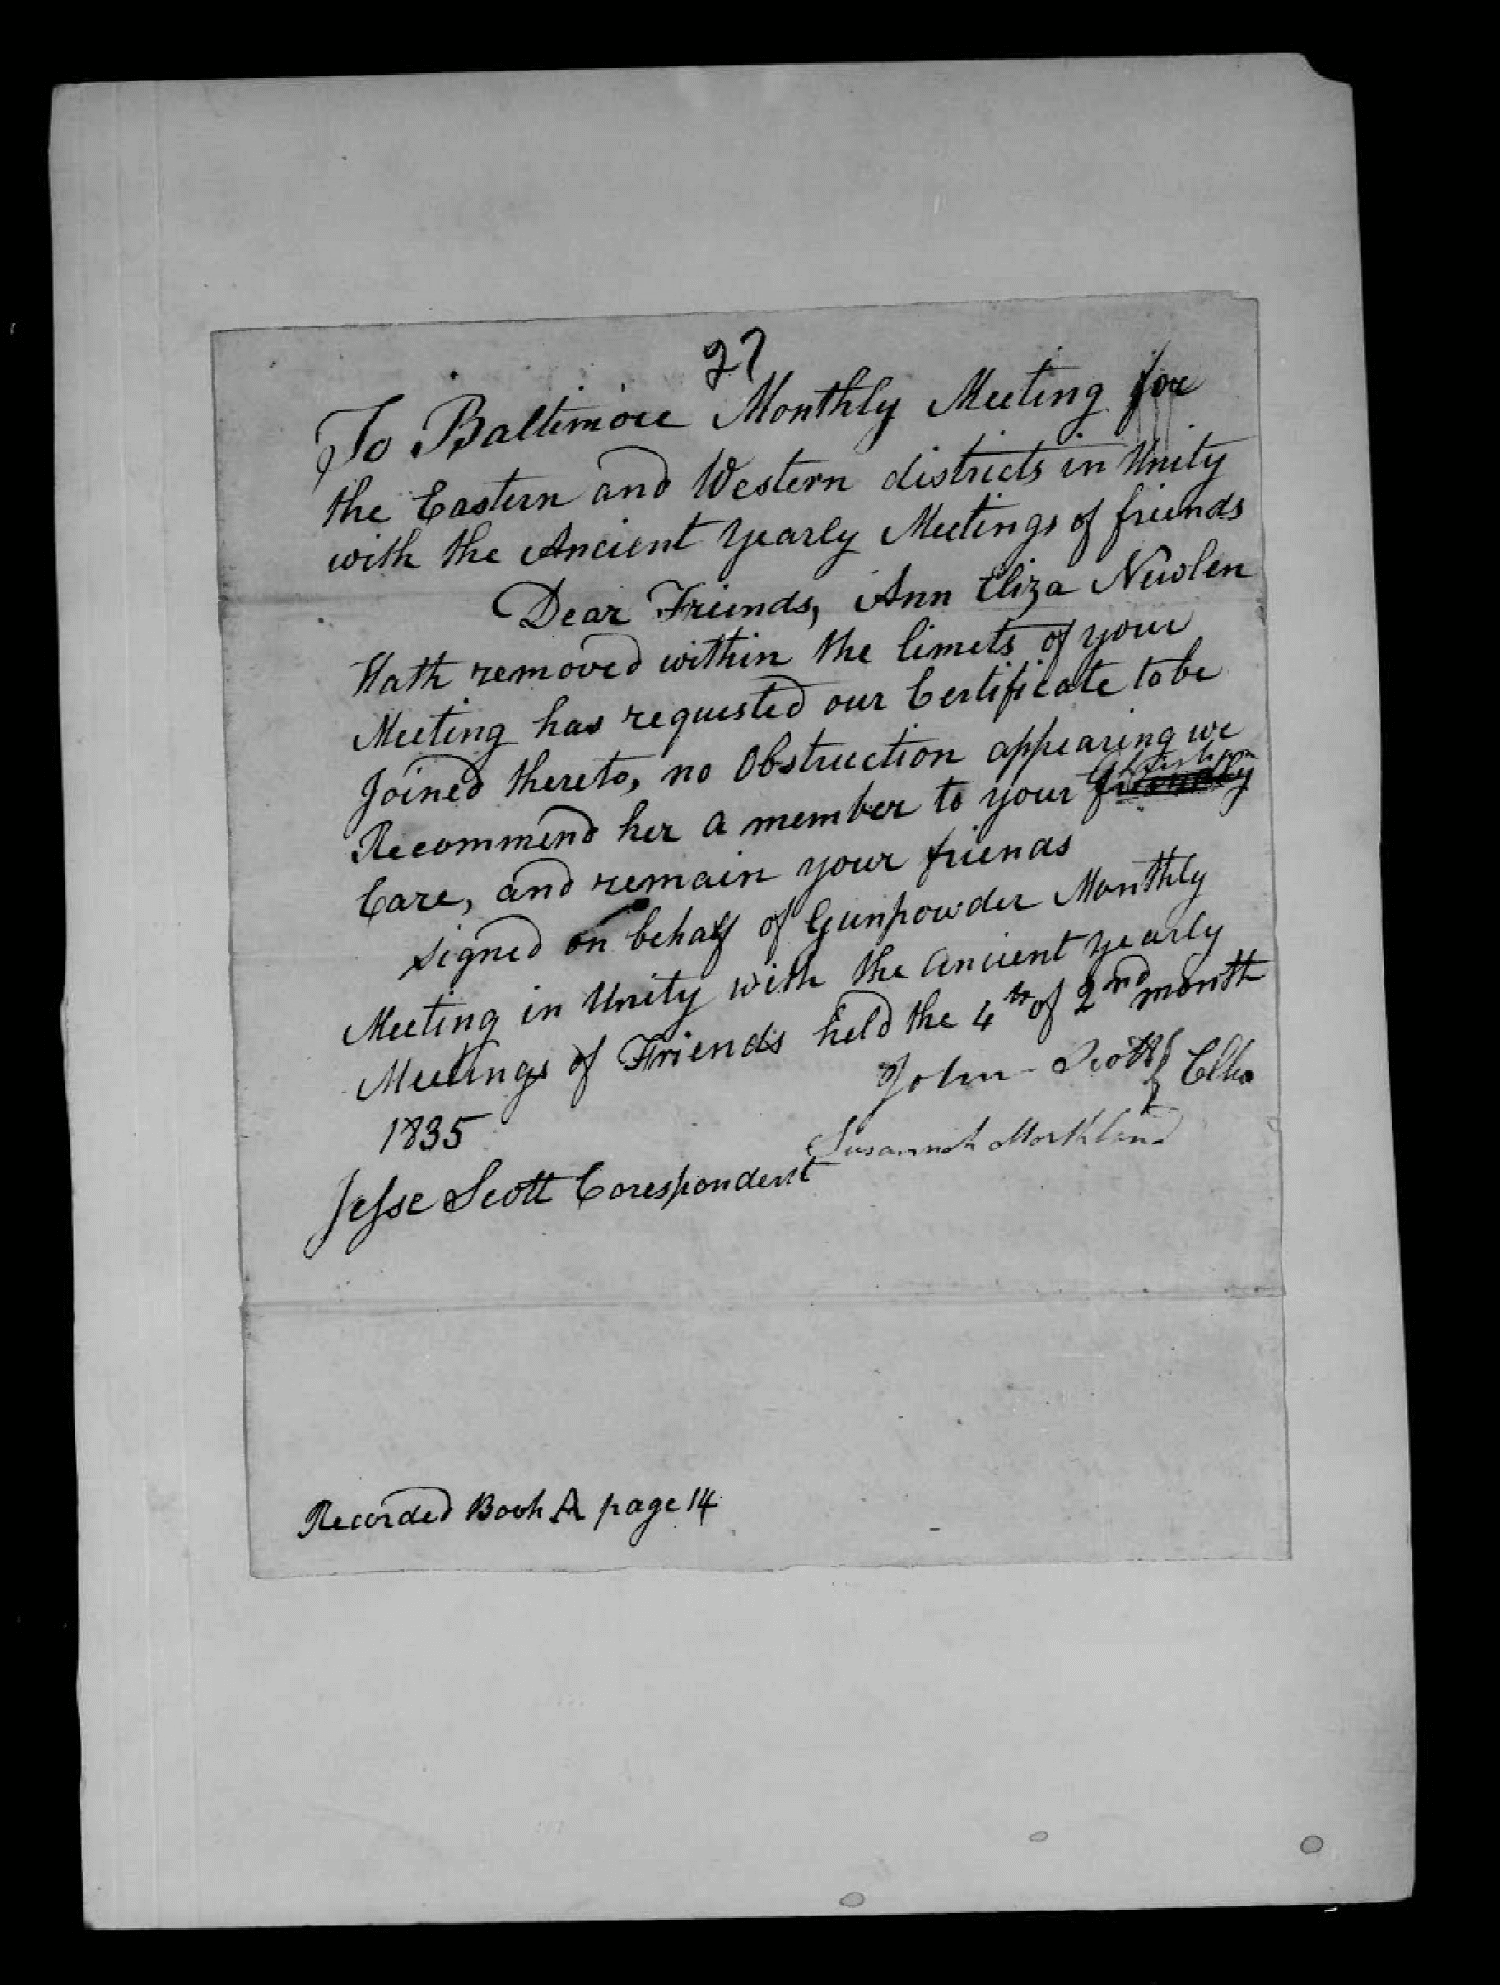 27
To Baltimore Monthly Meeting for
the Eastern and Western districts in Unity
with the Ancient Yearly Meetings of friends
Dear Friends, Ann Eliza Newlen
Hath removed within the limets of your
Meeting has requested our Certificate to be
Joined thereto, no Obstruction appearing we
Christian
Recommend her a member to your friendly
Care, and remain your friends
signed on behalf of Gunpowder Monthly
Meeting in Unity with the ancient yearly
Meetings of Friends held the 4th of 2nd month
1835
John Scott } Clks
Susannah Morthland
Jesse Scott Corespondent
Recorded Book A page 14